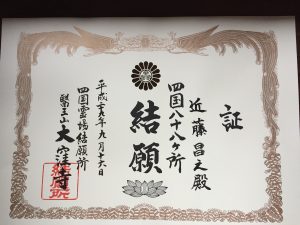 証
近藤昌之殿
四国八十八ヶ所
結願
平成廿九年九月十六日
四国霊場結願所
醫王山 大窪寺